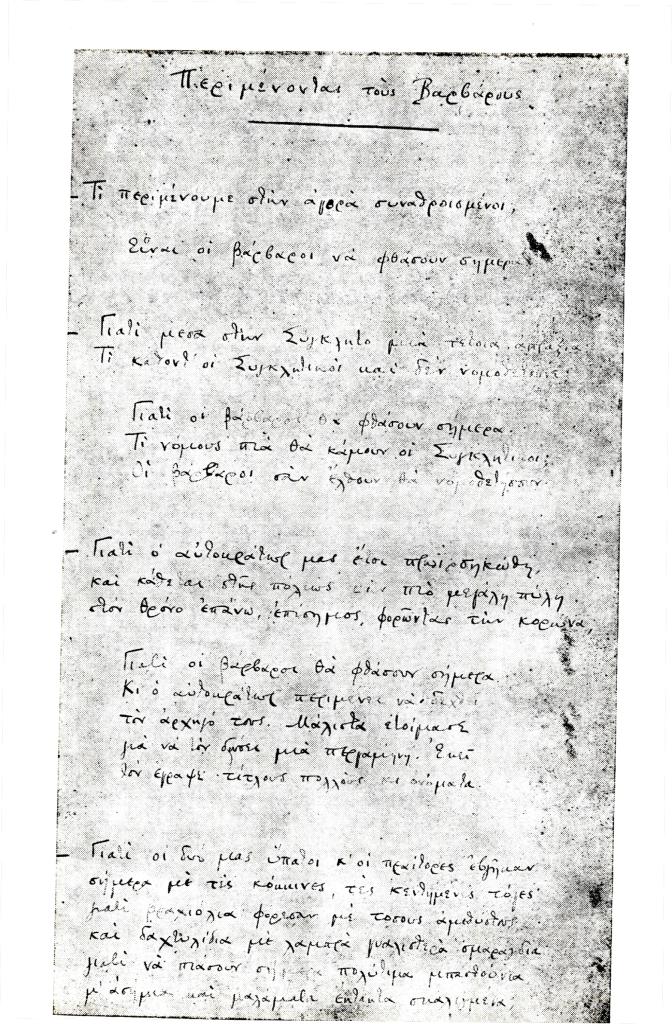 Περιμένοντας τοὺς Βαρβάρους
– Τί περιμένουμε στὴν ἀγορὰ συναθροισμένοι;
Εἶναι οἱ βάρβαροι νὰ φθάσουν σήμερα
– Γιατὶ μέσα στὴν Σύγκλητο μιὰ τέτοια ἀπραξία
Τί κάθοντ' οἱ Συγκλητικοὶ καὶ δὲν νομοθετοῦνε;
Γιατὶ οἱ βάρβαροι θὰ φθάσουν σήμερα.
Τί νόμους πιὰ θὰ κάμουν οἱ Συγκλητικοί;
Οἱ βάρβαροι σὰν ἔλθουν θὰ νομοθετήσουν
– Γιατὶ ὁ αὐτοκράτωρ μας ἔτσι πρωὶ σηκώθη,
καὶ κάθεται στῆς πόλεως τὴν πιὸ μεγάλη πύλη
στὸν θρόνο ἐπάνω, ἐπίσημος, φορῶντας τὴν κορώνα;
Γιατὶ οἱ βάρβαροι θὰ φθάσουν σήμερα
Κι ὁ αὐτοκράτωρ περιμένει νὰ δεχθεῖ
τὸν ἀρχηγό τους. Μάλιστα ἑτοίμασε
γιὰ νὰ τὸν δώσει μιὰ περγαμηνή. Ἐκεῖ
τὸν ἔγραψε τίτλους πολλοὺς κι ὀνόματα.
– Γιατὶ οἱ δυό μας ὕπατοι κ' οἱ πραίτορες ἐβγῆκαν
σήμερα μὲ τὲς κόκκινες, τὲς κεντημένες τόγες
γιατὶ βραχιόλια φόρεσαν μὲ τόσους ἀμεθύστους
καὶ δαχτυλίδια μὲ λαμπρὰ γυαλιστερὰ σμαράγδια
γιατὶ νὰ πιάσουν σήμερα πολύτιμα μπαστούνια
μ' ἀσήμια καὶ μαλάματα ἔκτακτα σκαλιγμένα